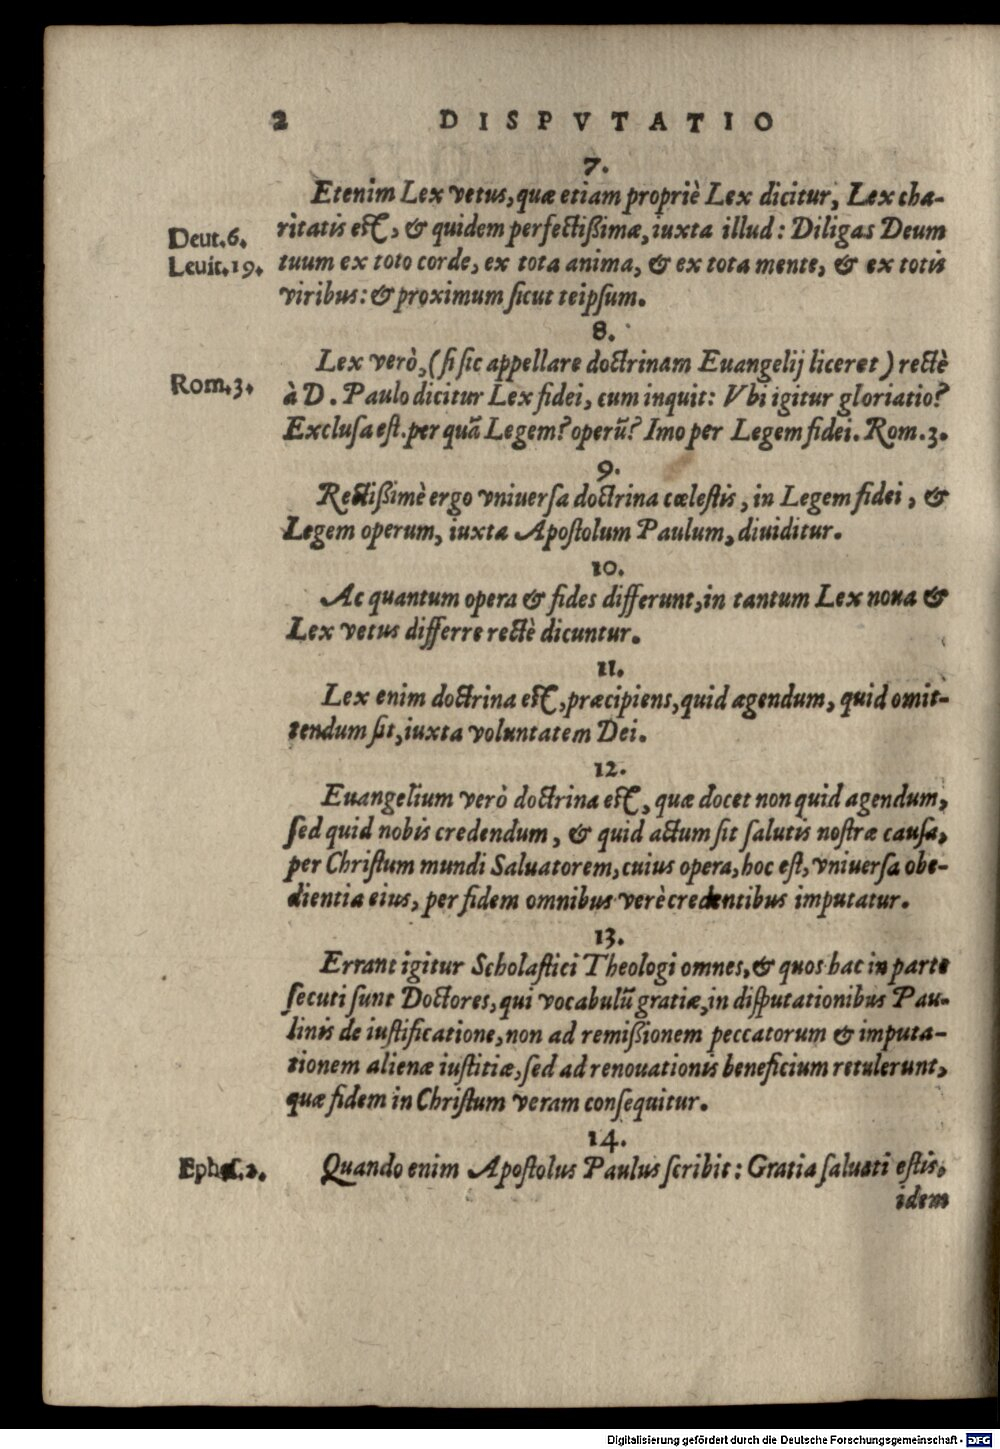 2 DISPVTATIO
7.
Etenim Lex vetus, quæ etiam propriè Lex dicitur, Lex cha-
Deut.6.
ritatis est, & quidem perfectißimæ, iuxta illud: Diligas Deum
Leuit.19.
tuum ex toto corde, ex tota anima, & ex tota mente, & ex totis
viribus: & proximum sicut teipsum.
8.
Lex verò, (si sic appellare doctrinam Euangelij liceret) rectè
Rom.3.
à D. Paulo dicitur Lex fidei, cum inquit: Vbi igitur gloriatio?
Exclusa est. per quã Legem? operũ? Imo per Legem fidei. Rom.3.
9.
Rectißimè ergo vniuersa doctrina cœlestis, in Legem fidei, &
Legem operum, iuxta Apostolum Paulum, diuiditur.
10.
Ac quantum opera & fides differunt, in tantum Lex noua &
Lex vetus differre rectè dicuntur.
11.
Lex enim doctrina est, præcipiens, quid agendum, quid omit-
tendum sit, iuxta voluntatem Dei.
12.
Euangelium verò doctrina est, quæ docet non quid agendum,
sed quid nobis credendum, & quid actum sit salutis nostræ causa,
per Christum mundi Saluatorem, cuius opera, hoc est, vniuersa obe-
dientia eius, per fidem omnibus verè credentibus imputatur.
13.
Errant igitur Scholastici Theologi omnes, & quos hac in parte
secuti sunt Doctores, qui vocabulũ gratiæ, in disputationibus Pau-
linis de iustificatione, non ad remißionem peccatorum & imputa-
tionem alienæ iustitiæ, sed ad renouationis beneficium retulerunt,
quæ fidem in Christum veram consequitur.
14.
Ephes.2.
Quando enim Apostolus Paulus scribit: Gratia saluati estis,
idem
Digitalisierung gefördert durch die Deutsche Forschungsgemeinschaft - DFG